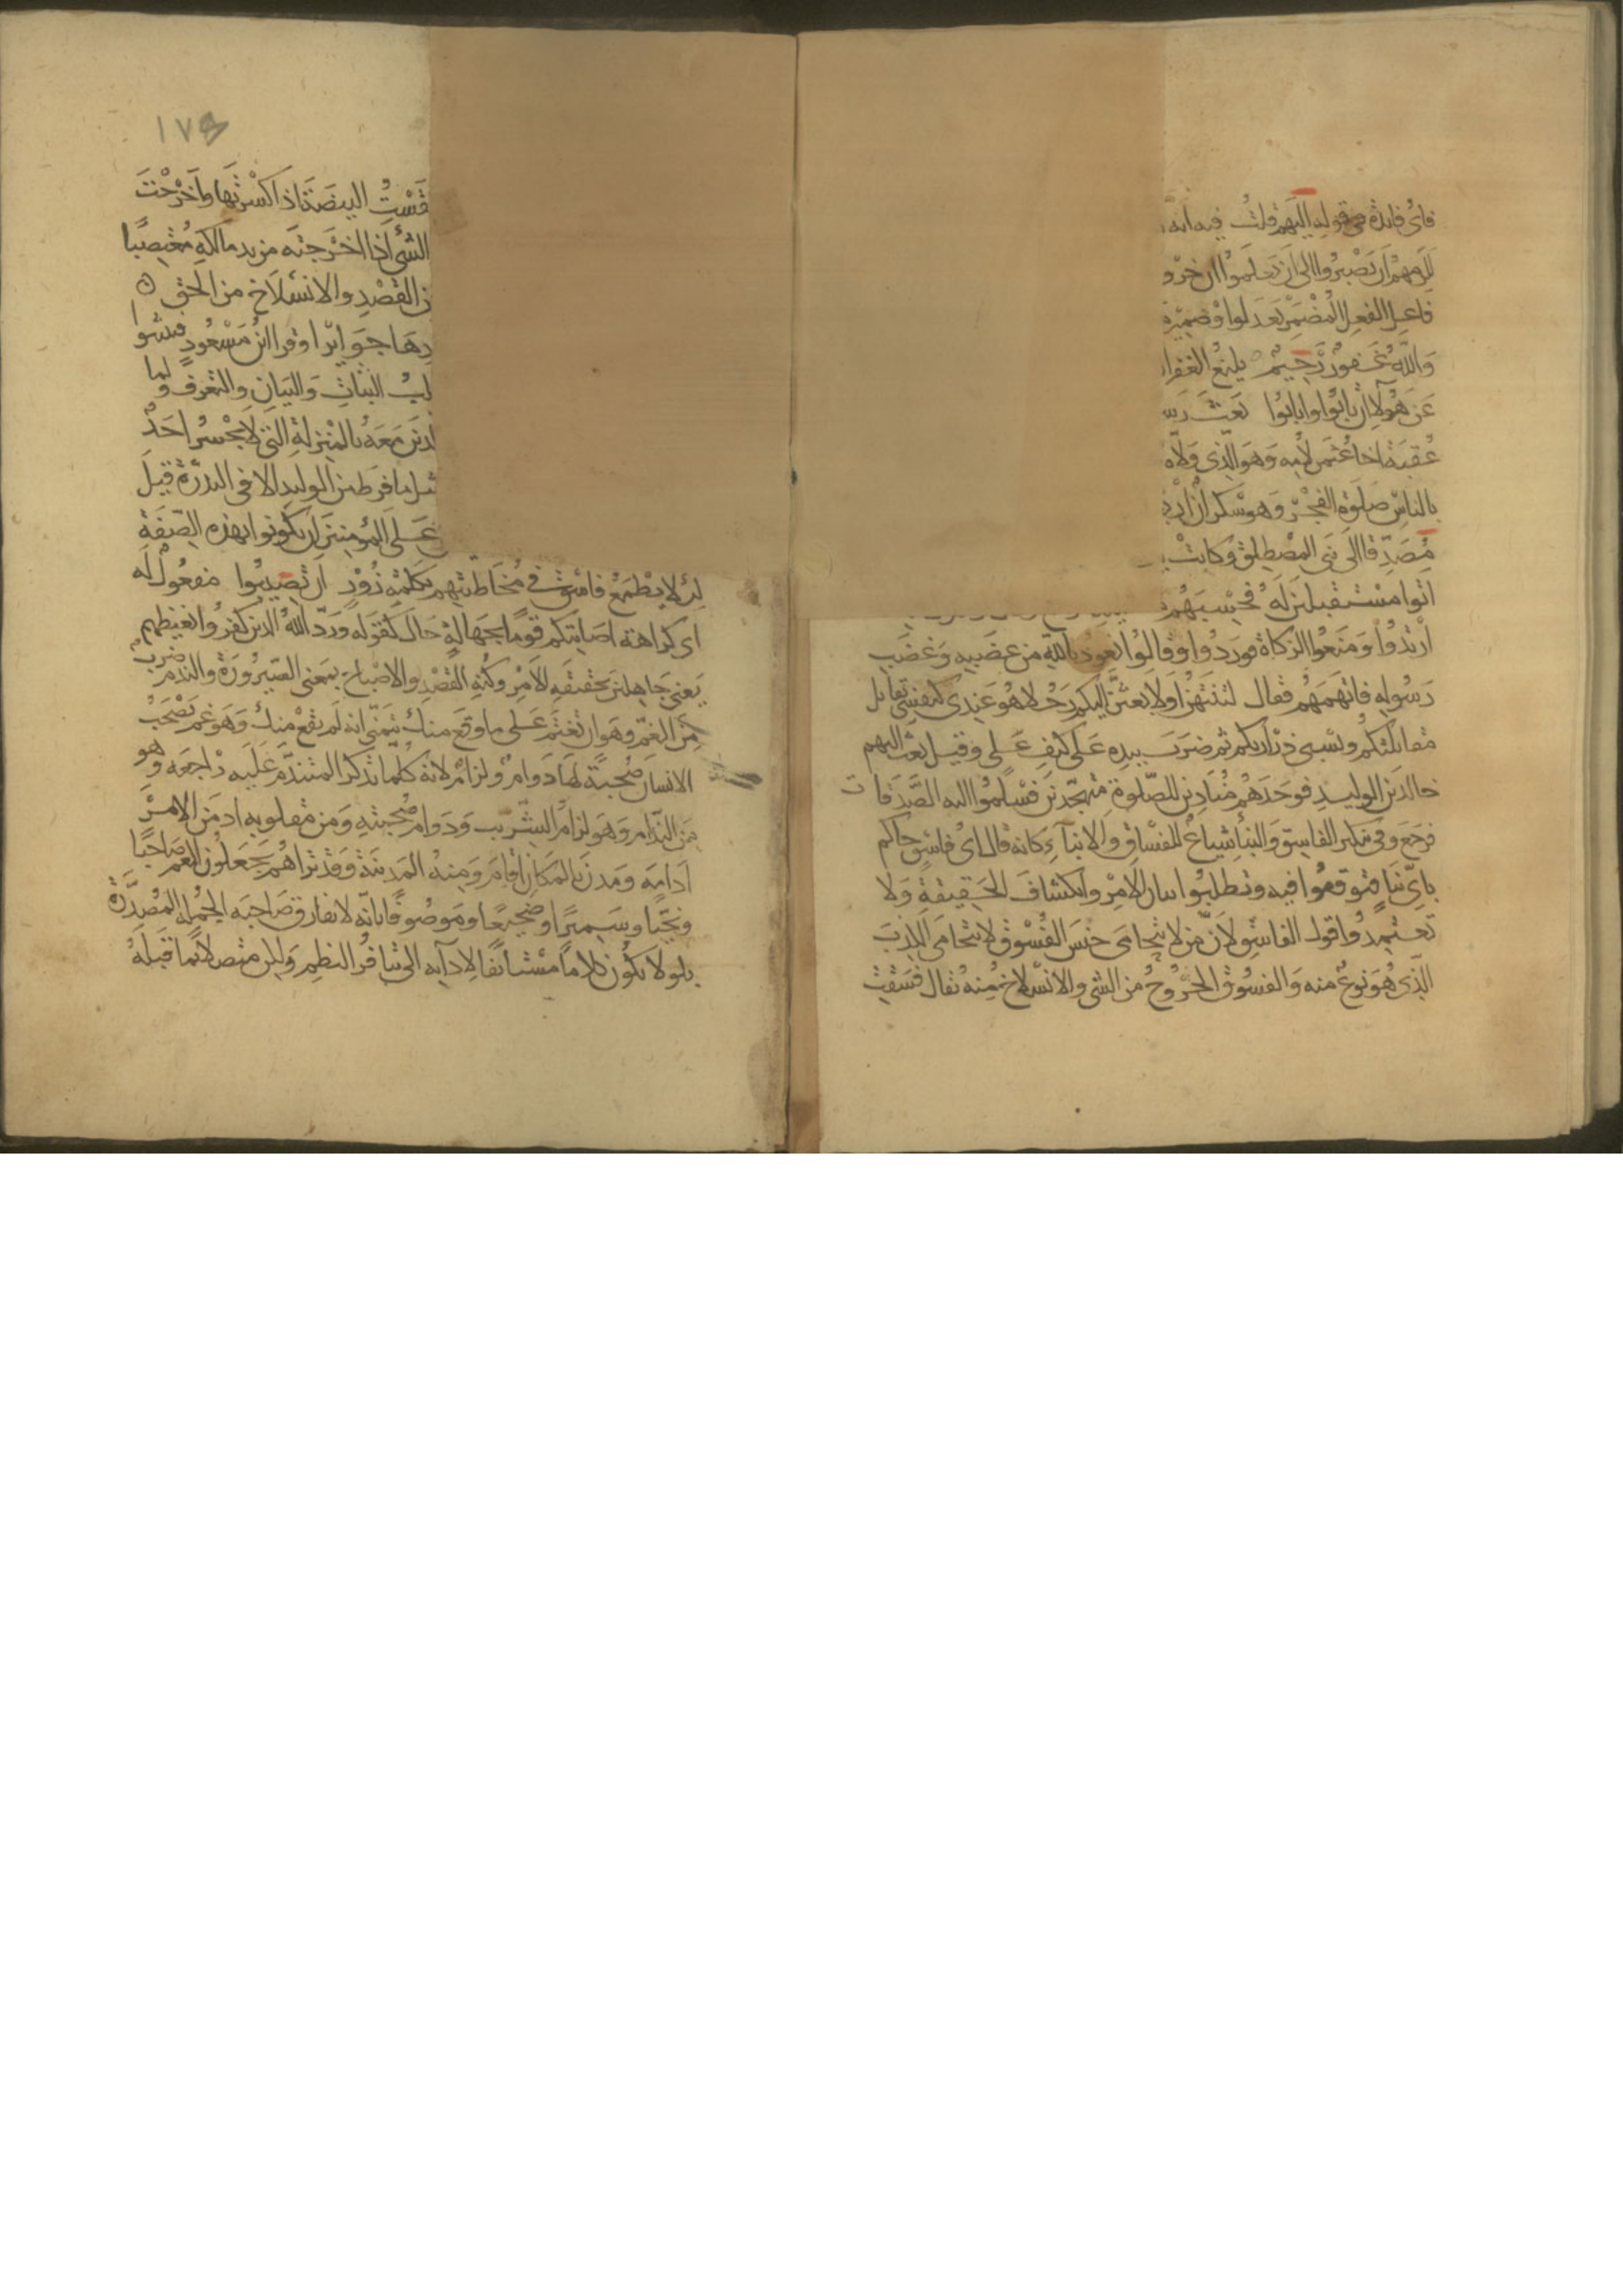 فاى فائدة فى قوله اليهم قلت فيه انه
للزمهم ان يصبروا الى ان يعلموا ان خرو
فاعل الفعل المضمر بعد لو او ضمير
والله غفور رحيم بليغ الغفرا
عن هولا ان تابوا وانابوا بعث رس
عقبة اخا عثمن لامه وهو الذى ولاه
بالناس صلوة الفجر وهو سكران
مصدقا الى بنى المصطلق وكانت
اتوا مستقبلين له فحسبهم
ارتدوا ومنعوا الزكاة فوردوا وقالوا نعوذ بالله من غضبه وغضب
رسوله فاتهمهم فقال لتنتهن او لابعثن اليكم رجلا هو عندى كنفسى يقاتل
مقاتلتكم ويسبى ذراريكم ثم ضرب بيده على كتف على وقيل بعث اليهم
خالد بن الوليد فوجدهم منادين للصلوة متهجدين فسلموا اليه الصدقات
فرجع وفى تنكير الفاسق والنبا شياع للفساق والانباء كانه قال اى فاسق جاكم
باى نبا فتوقفوا فيه وتطلبوا بيان الامر وانكشاف الحقيقة ولا
تعتمدوا قول الفاسق لان من لا يتحامى جنس الفسوق لا يتحامى الكذب
الذى هو نوع منه والفسوق الخروج من الشى والانسلاخ منه يقال فسقت
١٧٩
قفست البيضة اذا كسرتها واخرجت
الشى اذا اخرجته من يد مالكه مغتصبا
ن القصد والانسلاخ من الحق
وقرا ابن مسعود فتثبتوا
لب الثبات والبيان والتعرف ولما
لذين معه بالمنزلة التى لا يجسر احد
ثل ما فرط من الوليد الا فى الندرة قيل
على المومنين ان يكونوا بهذه الصفة
لئلا يطمع فاسق فى مخاطبتهم بكلمة زور ان تصيبوا مفعول له
اى كراهة اصابتكم قوما بجهالة حال كقوله ورد الله الذين كفروا بغيظهم
يعنى جاهلين بحقيقة الامر وكنه القصة والاصباح بمعنى الصيرورة والندم ضرب
من الغم وهو ان تغتم على ما وقع منك تتمنى انه لم يقع منك وهو غم يصحب
الانسان صحبة لها دوام ولزام لانه كلما تذكر المتندم عليه راجعه وهو
من الندام وهو لزام الشريب ودوام صحبته ومن مقلوباته ادمن الامر
ادامه ومدن بالمكان اقام ومنه المدينة وقد تراهم يجعلون الغم صاحبا
ونجيا وسميرا وضجيعا وموصوفا بانه لا يفارق صاحبه الجملة المصدرة
بلو لا تكون كلاما مستانفا لادايه الى تنافر النظم ولكن متصلا بما قبله